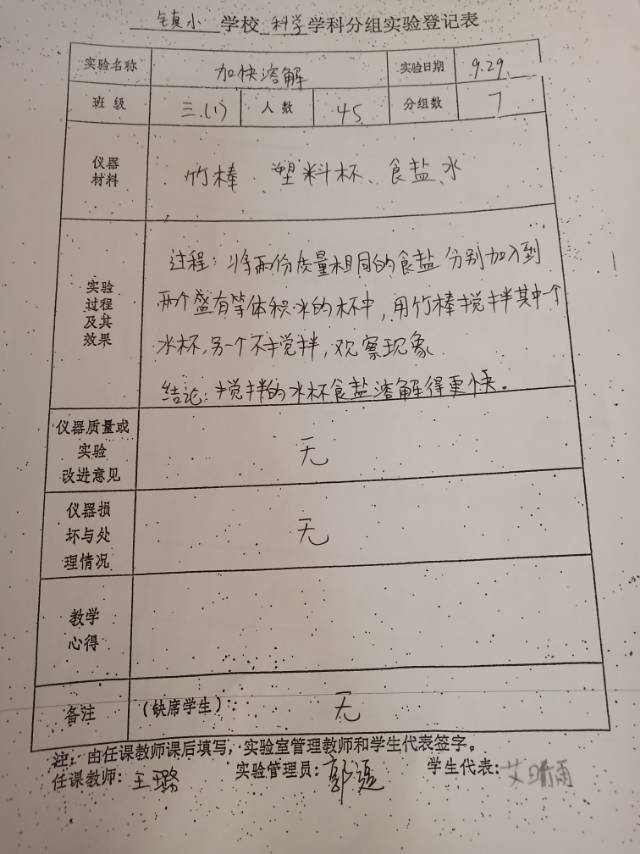 镇小 学校 科学 学科分组实验登记表
实验名称 加快溶解 实验日期 9.29.
班 级 三.(1) 人 数 45 分组数 7
仪器
材料
竹棒、塑料杯、食盐、水
实验
过程
及其
效果
过程：将两份质量相同的食盐分别加入到
两个盛有等体积水的杯中，用竹棒搅拌其中一个
水杯，另一个不搅拌，观察现象
结论：搅拌的水杯食盐溶解得更快。
仪器质量或
实验
改进意见
无
仪器损
坏与处
理情况
无
教学
心得
备注 (缺席学生)： 无
注：由任课教师课后填写，实验室管理教师和学生代表签字。
任课教师：王璐 实验管理员：郭 学生代表：艾